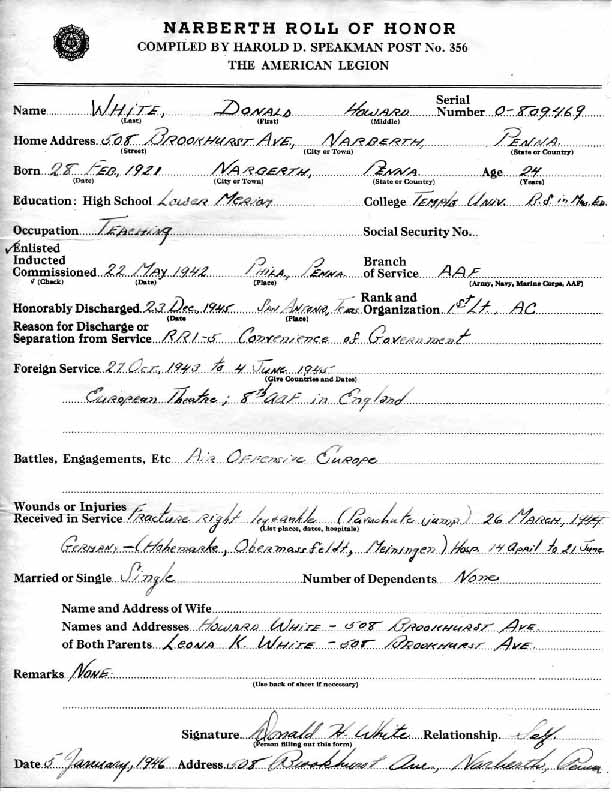 NARBERTH ROLL OF HONOR
COMPILED BY HAROLD D. SPEAKMAN POST No. 356
THE AMERICAN LEGION
Name WHITE, DONALD HOWARD Serial Number O-809469
(Last) (First) (Middle)
Home Address 508 BROOKHURST AVE, NARBERTH, PENNA
(Street) (City or Town) (State or Country)
Born 28 FEB, 1921 NARBERTH, PENNA Age 24
(Date) (City or Town) (State or Country) (Years)
Education: High School LOWER MERION College TEMPLE UNIV. B.S in Mus. Ed.
Occupation TEACHING Social Security No.
✓Enlisted
Inducted Branch
Commissioned 22 MAY 1942 PHILA, PENNA of Service AAF
√ (Check) (Date) (Place) (Army, Navy, Marine Corps, AAF)
Honorably Discharged 23 DEC, 1945 SAN ANTONIO, TEXAS Rank and Organization 1st Lt, AC
(Date (Place)
Reason for Discharge or
Separation from Service RR1-5 Convenience of Government
Foreign Service 27 Oct, 1943 to 4 June 1945
(Give Countries and Dates)
European Theatre; 8th AAF in England
Battles, Engagements, Etc AIR OFFENSIVE EUROPE
Wounds or Injuries
Received in Service Fracture right leg ankle (Parachute jump) 26 MARCH, 1944
(List places, dates, hospitals)
GERMANY - (Hohemarke, Obermassfeldt, Meiningen) Hosp 14 April to 21 June
Married or Single Single Number of Dependents None
Name and Address of Wife
Names and Addresses HOWARD WHITE - 508 BROOKHURST AVE.
of Both Parents LEONA K. WHITE - 508 BROOKHURST AVE.
Remarks NONE
(Use back of sheet if necessary)
Signature Donald H. White Relationship Self
(Person filling out this form)
Date 5 January, 1946 Address 508 Brookhurst Ave, Narberth, Penna